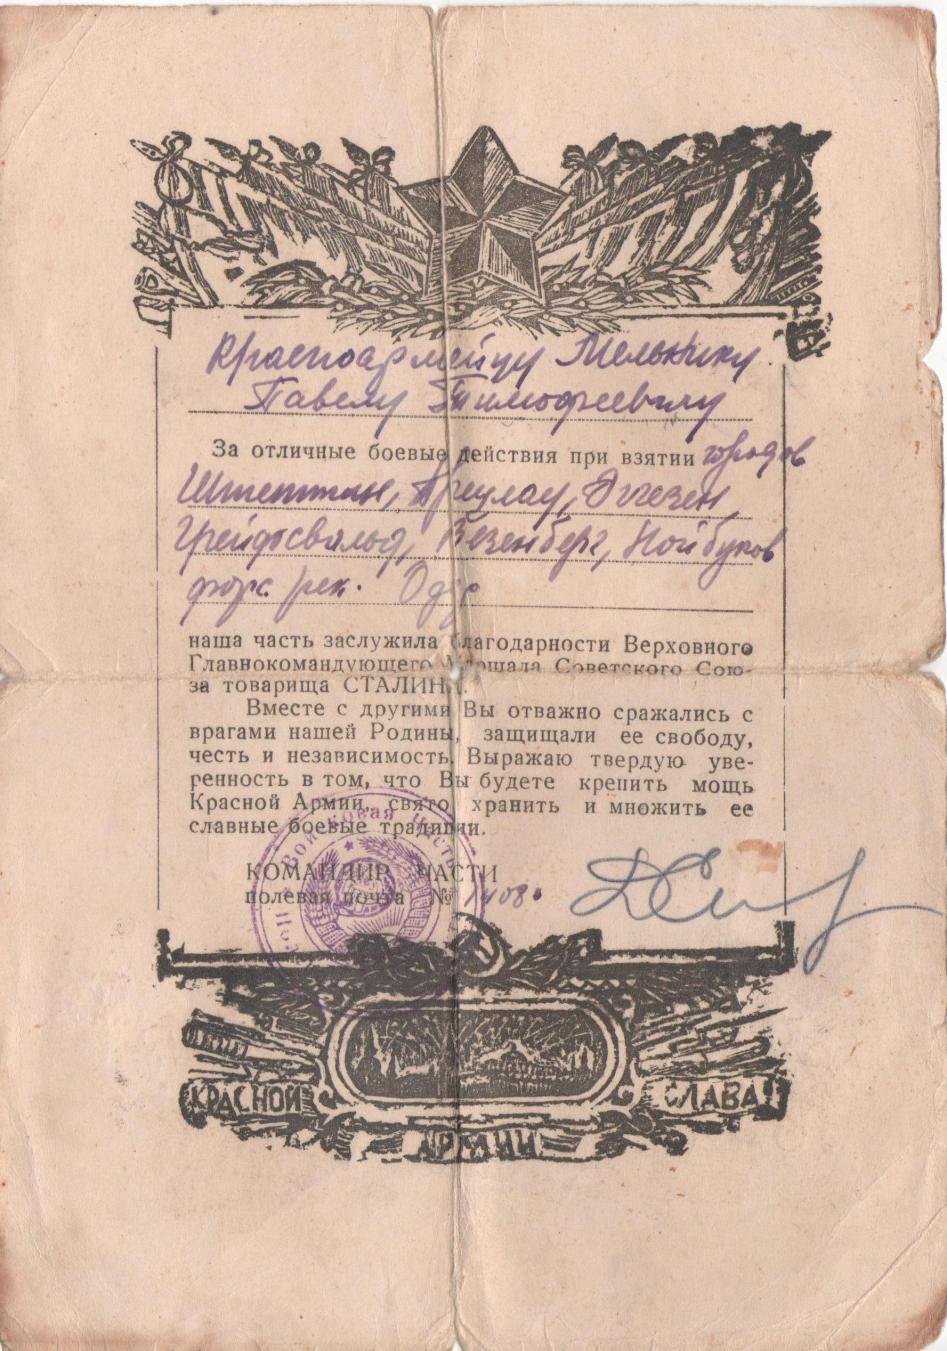 Красноармейцу Мельнику
Павелу Тимофеевичу
За отличные боевые действия при взятии городов
Штеттин, Прецлау, Эггезен
Грейфсвальд, Везенберг, Нойбуков
форс. рек. Одер
наша часть заслужила благодарности Верховного
Главнокомандующего Маршала Советского Сою-
за товарища СТАЛИНА.
Вместе с другими Вы отважно сражались с
врагами нашей Родины, защищали ее свободу,
честь и независимость. Выражаю твердую уве-
ренность в том, что Вы будете крепить мощь
Красной Армии, свято хранить и множить ее
славные боевые традиции.
Войсковая часть
КОМАНДИР ЧАСТИ
полевая почта №
КРАСНОЙ СЛАВА
АРМИИ